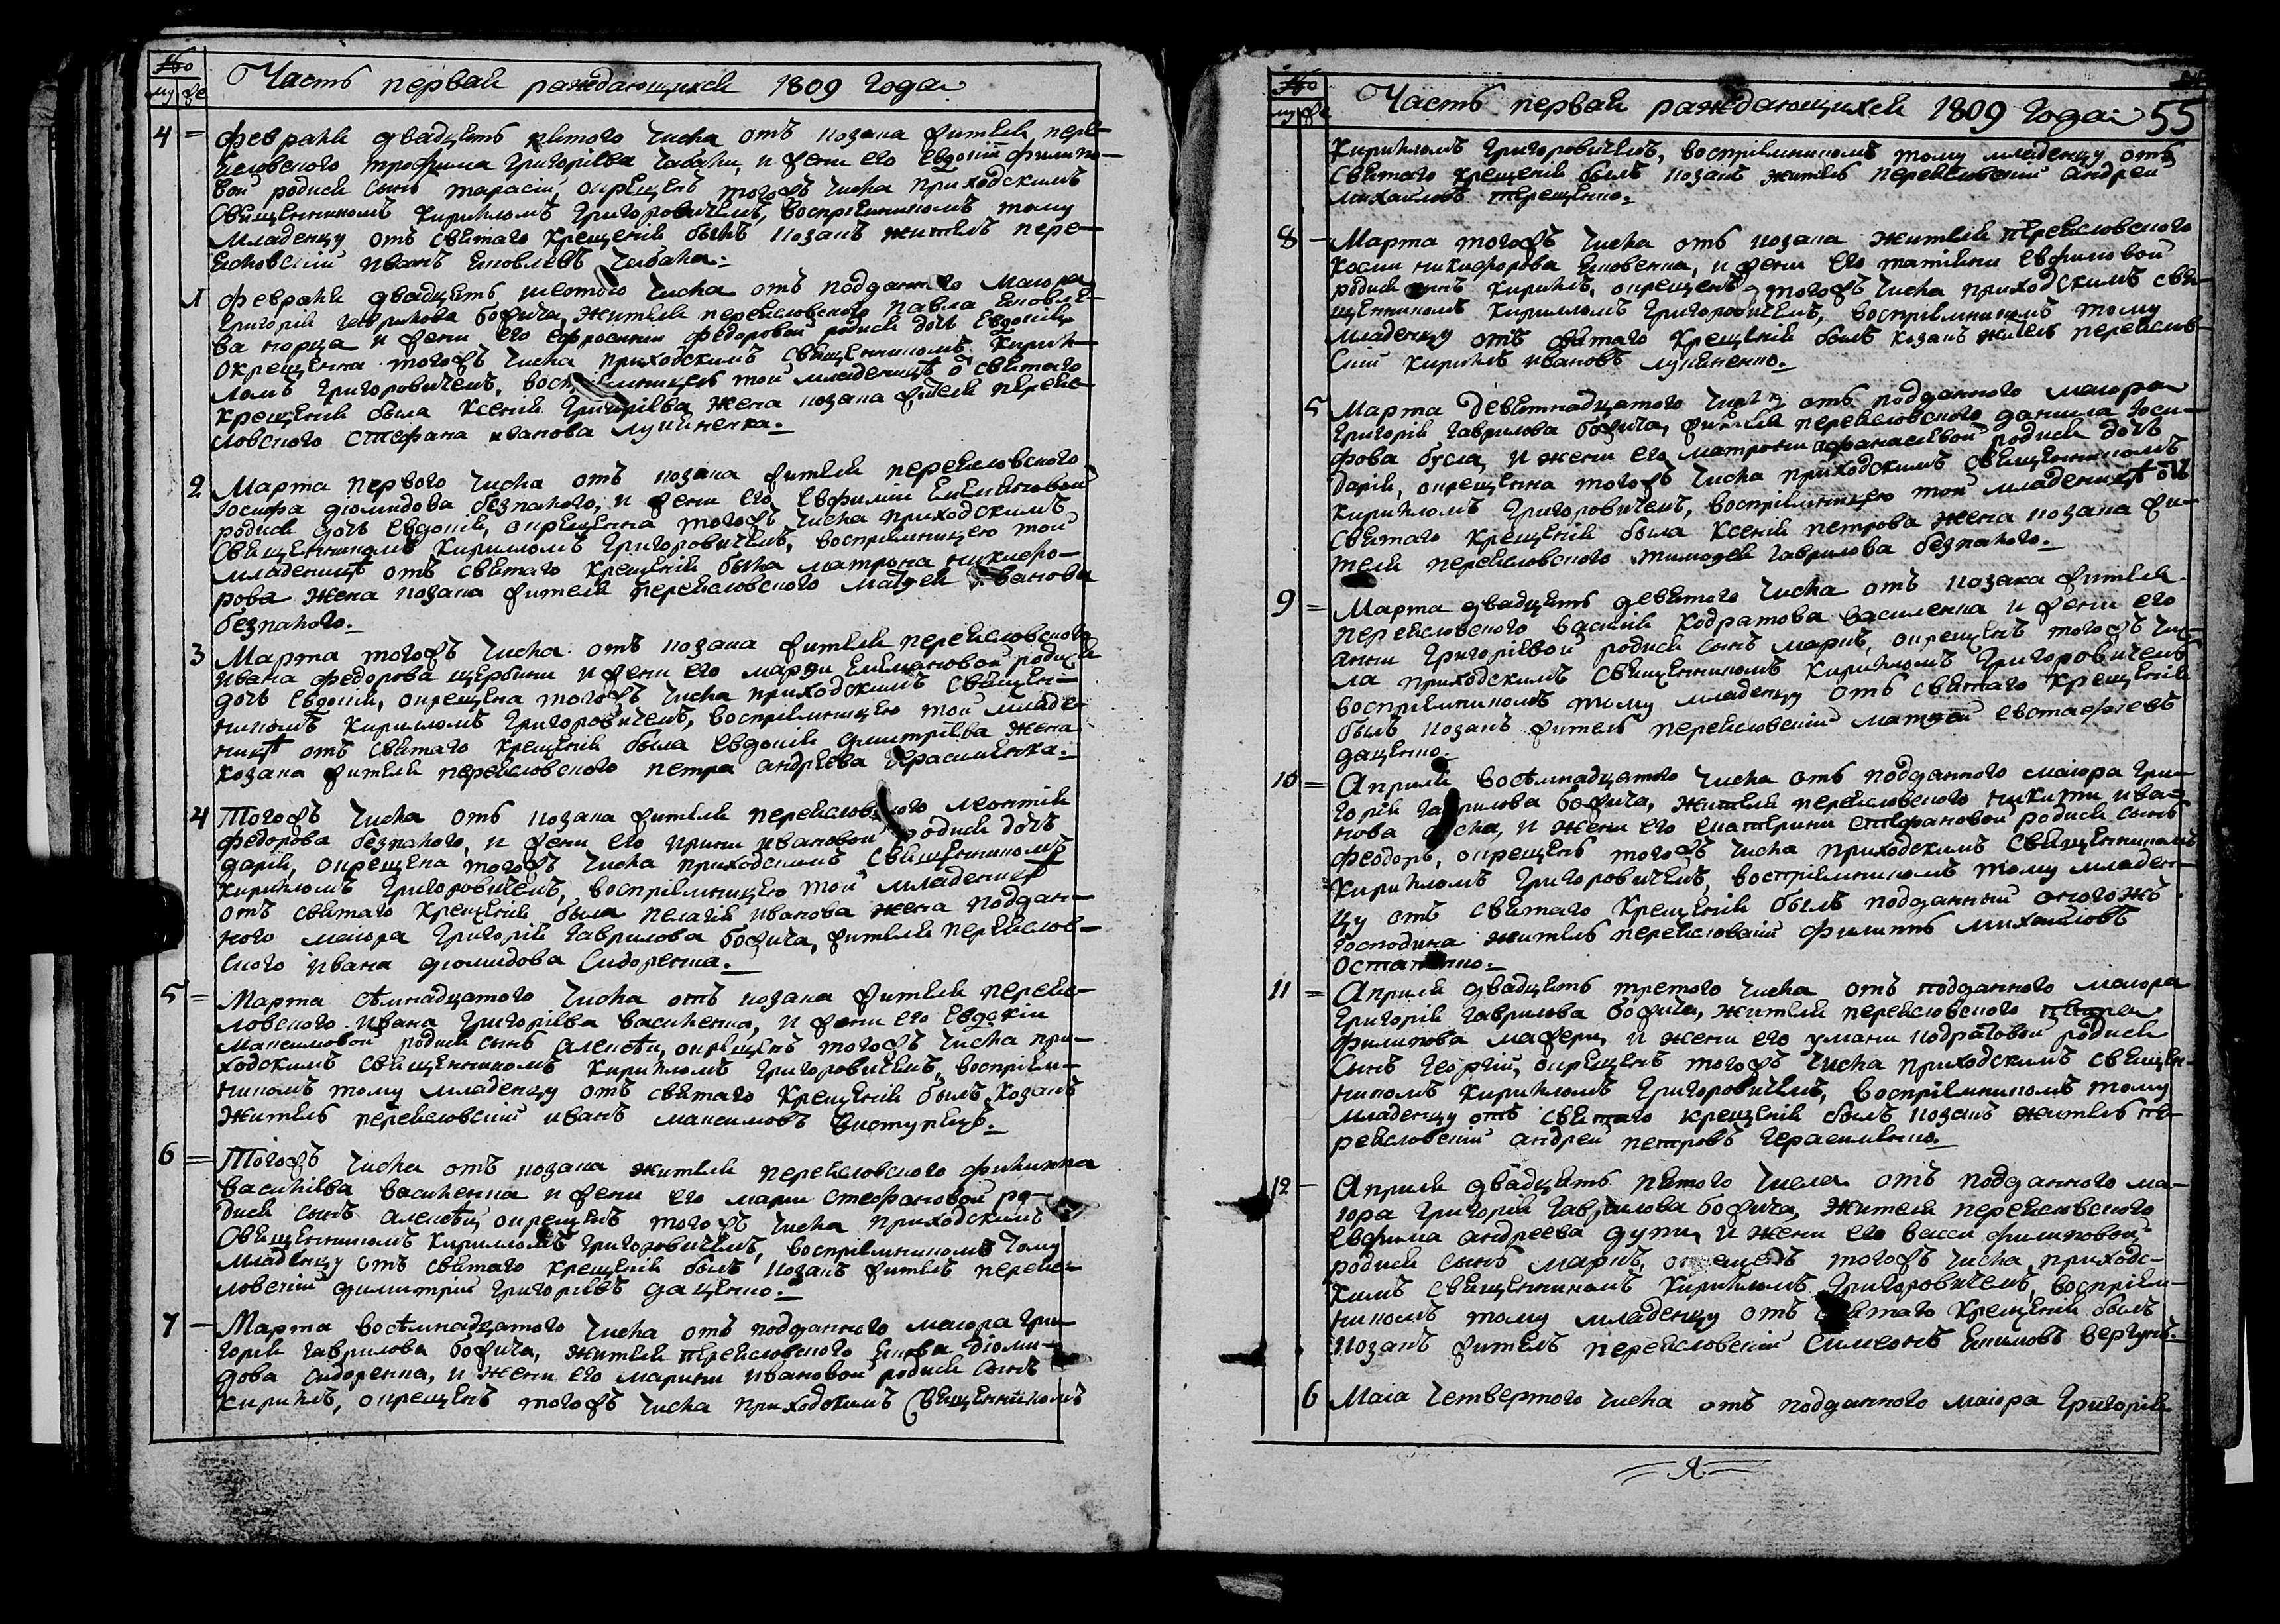 №
му
Же
Часть первая раждающихся 1809 года
4
Февраля двадцять пятого числа отъ козака жителя пере-
ясловского трофима Григоріева чабаки, и жени его Евдокіи филипо-
вой родися сынъ тарасій, окрещенъ тогожъ числа приходскимъ
Священникомъ Кирилломъ Григоровичемъ, воспріемникомъ тому
младенцу отъ святаго крещенія былъ козакъ житель пере-
ясловскій иванъ яковлевъ
1
февраля двадцять шестого числа отъ подданного маіора
Григорія Гаврилова божича, жителя переясловского павла яковле-
ва и жени его Ефросиніи федоровой родися дочъ Евдокія
окрещенна тогожъ числа приходскимъ священникомъ Кирил-
ломъ Григоровичемъ, воспріемницею той младеницѣ о святаго
крещенія была Ксенія Григоріева жена козака жителя переяс-
ловского стефана иванова лучиненка.
2
Марта первого числа отъ козака жителя переясловского
Іосифа діомидова безпалого, и жени его Евфиміи Емеляновой
родися дочъ Евдокія, окрещенна тогожъ числа приходскимъ
Священникомъ Кирилломъ Григоровичемъ, воспріемницею той
младеницѣ отъ святаго крещенія была матрона никифо-
рова жена козака жителя переясловского матфея иванова
безпалого.
3
Марта тогожъ числа отъ козака жителя переясловского
ивана федорова щербини и жени его марфи Емеляновой родися
дочъ Евдокія, окрещена тогожъ числа приходскимъ священ-
никомъ Кирилломъ Григоровичемъ, воспріемницею той младе-
ницѣ отъ святаго крещенія была Евдокія дмитріева жена
козака жителя переясловского петра андріева Герасименка.
4
Тогожъ числа отъ козака жителя переясловского леонтія
федорова безпалого, и жени его ирини ивановой родися дочъ
дарія, окрещена тогожъ числа приходскимъ Священникомъ
Кирилломъ Григоровичемъ, воспріемницею той младеницѣ
отъ святаго крещенія была пелагія иванова жена поддан-
ного маіора Григорія Гаврилова божича, жителя переяслов-
ского ивана діомидова Сидоренка.
5
Марта семнадцатого числа отъ козака жителя переяс-
ловского ивана Григоріева василенка, и жени его Евдокіи
максимовой родися сынъ алексѣй, окрещенъ тогожъ числа при-
ходскимъ священникомъ Кирилломъ Григоровичемъ, воспріем-
никомъ тому младенцу отъ святаго крещенія былъ козакъ
житель переясловскій иванъ максимовъ
6
Тогожъ числа отъ козака жителя переясловского филиппа
василіева василенка и жени его маріи стефановой ро-
дися сынъ алексѣй, окрещенъ тогожъ числа приходскимъ
Священникомъ Кирилломъ Григоровичемъ, воспріемникомъ тому
младенцу отъ святаго крещенія былъ козакъ житель переяс-
ловскій димитрій Григоріевъ даценко.
7
Марта восѣмнадцатого числа отъ подданного маіора Гри-
горія Гаврилова божича, жителя переясловского діоми-
дова сидоренка, и жени его марини ивановой родися сынъ
Кириллъ, окрещенъ тогожъ числа приходскимъ Священникомъ
№
му
Же
Часть первая раждающихся 1809 года
55
Кирилломъ Григоровичемъ, воспріемникомъ тому младенцу отъ
Святаго крещенія былъ козакъ житель переясловскій андрей
михаиловъ терещенко.
8
Марта тогожъ числа отъ козака жителя переясловского
косми никифорова яковенка, и жени его татіяни Евфимовой
родися сынъ Кириллъ, окрещенъ тогожъ числа приходскимъ свя-
щенникомъ Кирилломъ Григоровичемъ, воспріемникомъ тому
младенцу отъ святаго крещенія былъ козакъ житель переяслов-
скій Кириллъ ивановъ лучиненко.
5
Марта девятнадцатого числа отъ подданного маіора
Григорія Гаврилова божича, жителя переясловского даниила Іоси-
фова бусла, и жени его матрони афанасіевой родися дочъ
Дарія, окрещенна тогожъ числа приходскимъ священникомъ
Кирилломъ Григоровичемъ, воспріемницею той младеницѣ отъ
Святаго крещенія была Ксенія петрова жена козака жи-
теля переясловского тимофея гаврилова безпалого.
9
Марта двадцять девятого числа отъ козака жителя
переясловского василія кодратова василенка и жени его
анни Григоріевой родися сынъ маркъ, окрещенъ тогожъ чис-
ла приходскимъ священникомъ Кирилломъ Григоровичемъ
воспріемникомъ тому младенцу отъ святаго крещенія
былъ козакъ житель переясловскій матфей евстафіевъ
даценко.
10
Априля восѣмнадцатого числа отъ подданного маіора Гри-
горія Гаврилова божича, жителя переясловского никити ива-
нова и жени его екатерини стефановой родися сынъ
феодоръ, окрещенъ тогожъ числа приходскимъ священникомъ
Кирилломъ Григоровичемъ, воспріемникомъ тому младен-
цу отъ святаго крещенія былъ подданный оногожъ
господина житель переясловскій филиппъ михаиловъ
остапенко.
11
Априля двадцять третого числа отъ подданного маіора
Григорія Гаврилова божича, жителя переясловского петра
филипова и жени его кодратовой родися
Сынъ георгій, окрещенъ тогожъ числа приходскимъ священ-
никомъ Кирилломъ Григоровичемъ, воспріемникомъ тому
младенцу отъ святаго крещенія былъ козакъ житель пе-
реясловскій андрей петровъ Герасименко.
12
Априля двадцять пятого числа отъ подданного ма-
іора Григорія Гаврилова божича, жителя переясловского
Евфима андреева дути, и жени его васси филиповой
родися сынъ маркъ, окрещенъ тогожъ числа приходс-
кимъ священникомъ Кирилломъ Григоровичемъ, воспріем-
никомъ тому младенцу отъ святаго крещенія былъ
козакъ житель переясловскій Симеонъ Екимовъ вергунъ.
6
Маіа четвертого числа отъ подданного маіора Григорія